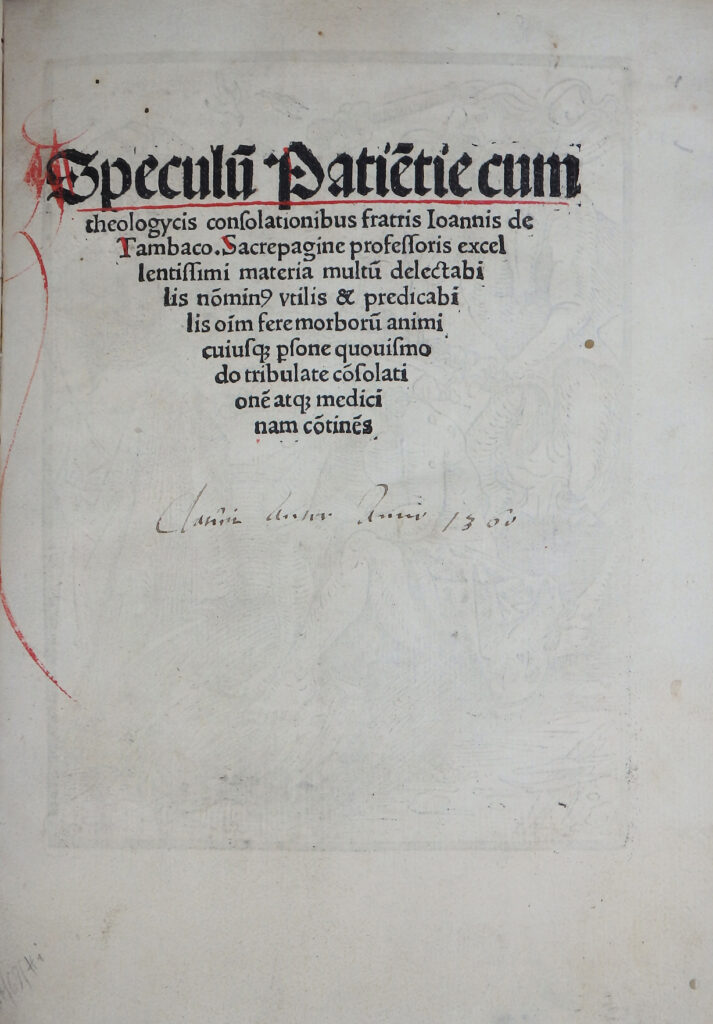 Speculū Patiētie cum
theologycis conſolationibus fratris Ioannis de
Tambaco. Sacrepagine profeſſoris excel
lentiſſimi materia multū delectabi
lis nōminꝯ vtilis & predicabi
lis oīm fere morborū animi
cuiuſqꝫ pſone quouiſmo
do tribulate cōſolati
onē atqꝫ medici
nam cōtinēs
Anno